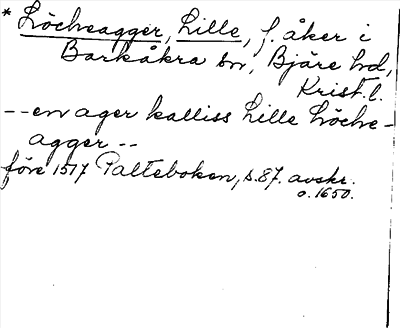 * Löcheagger, Lille, f. åker i
Barkåkra sn, Bjäre hd,
Krist. l.
-- en ager kalliss Lille Löche-
agger --
före 1517 Palteboken, s. 87. avskr.
o. 1650.